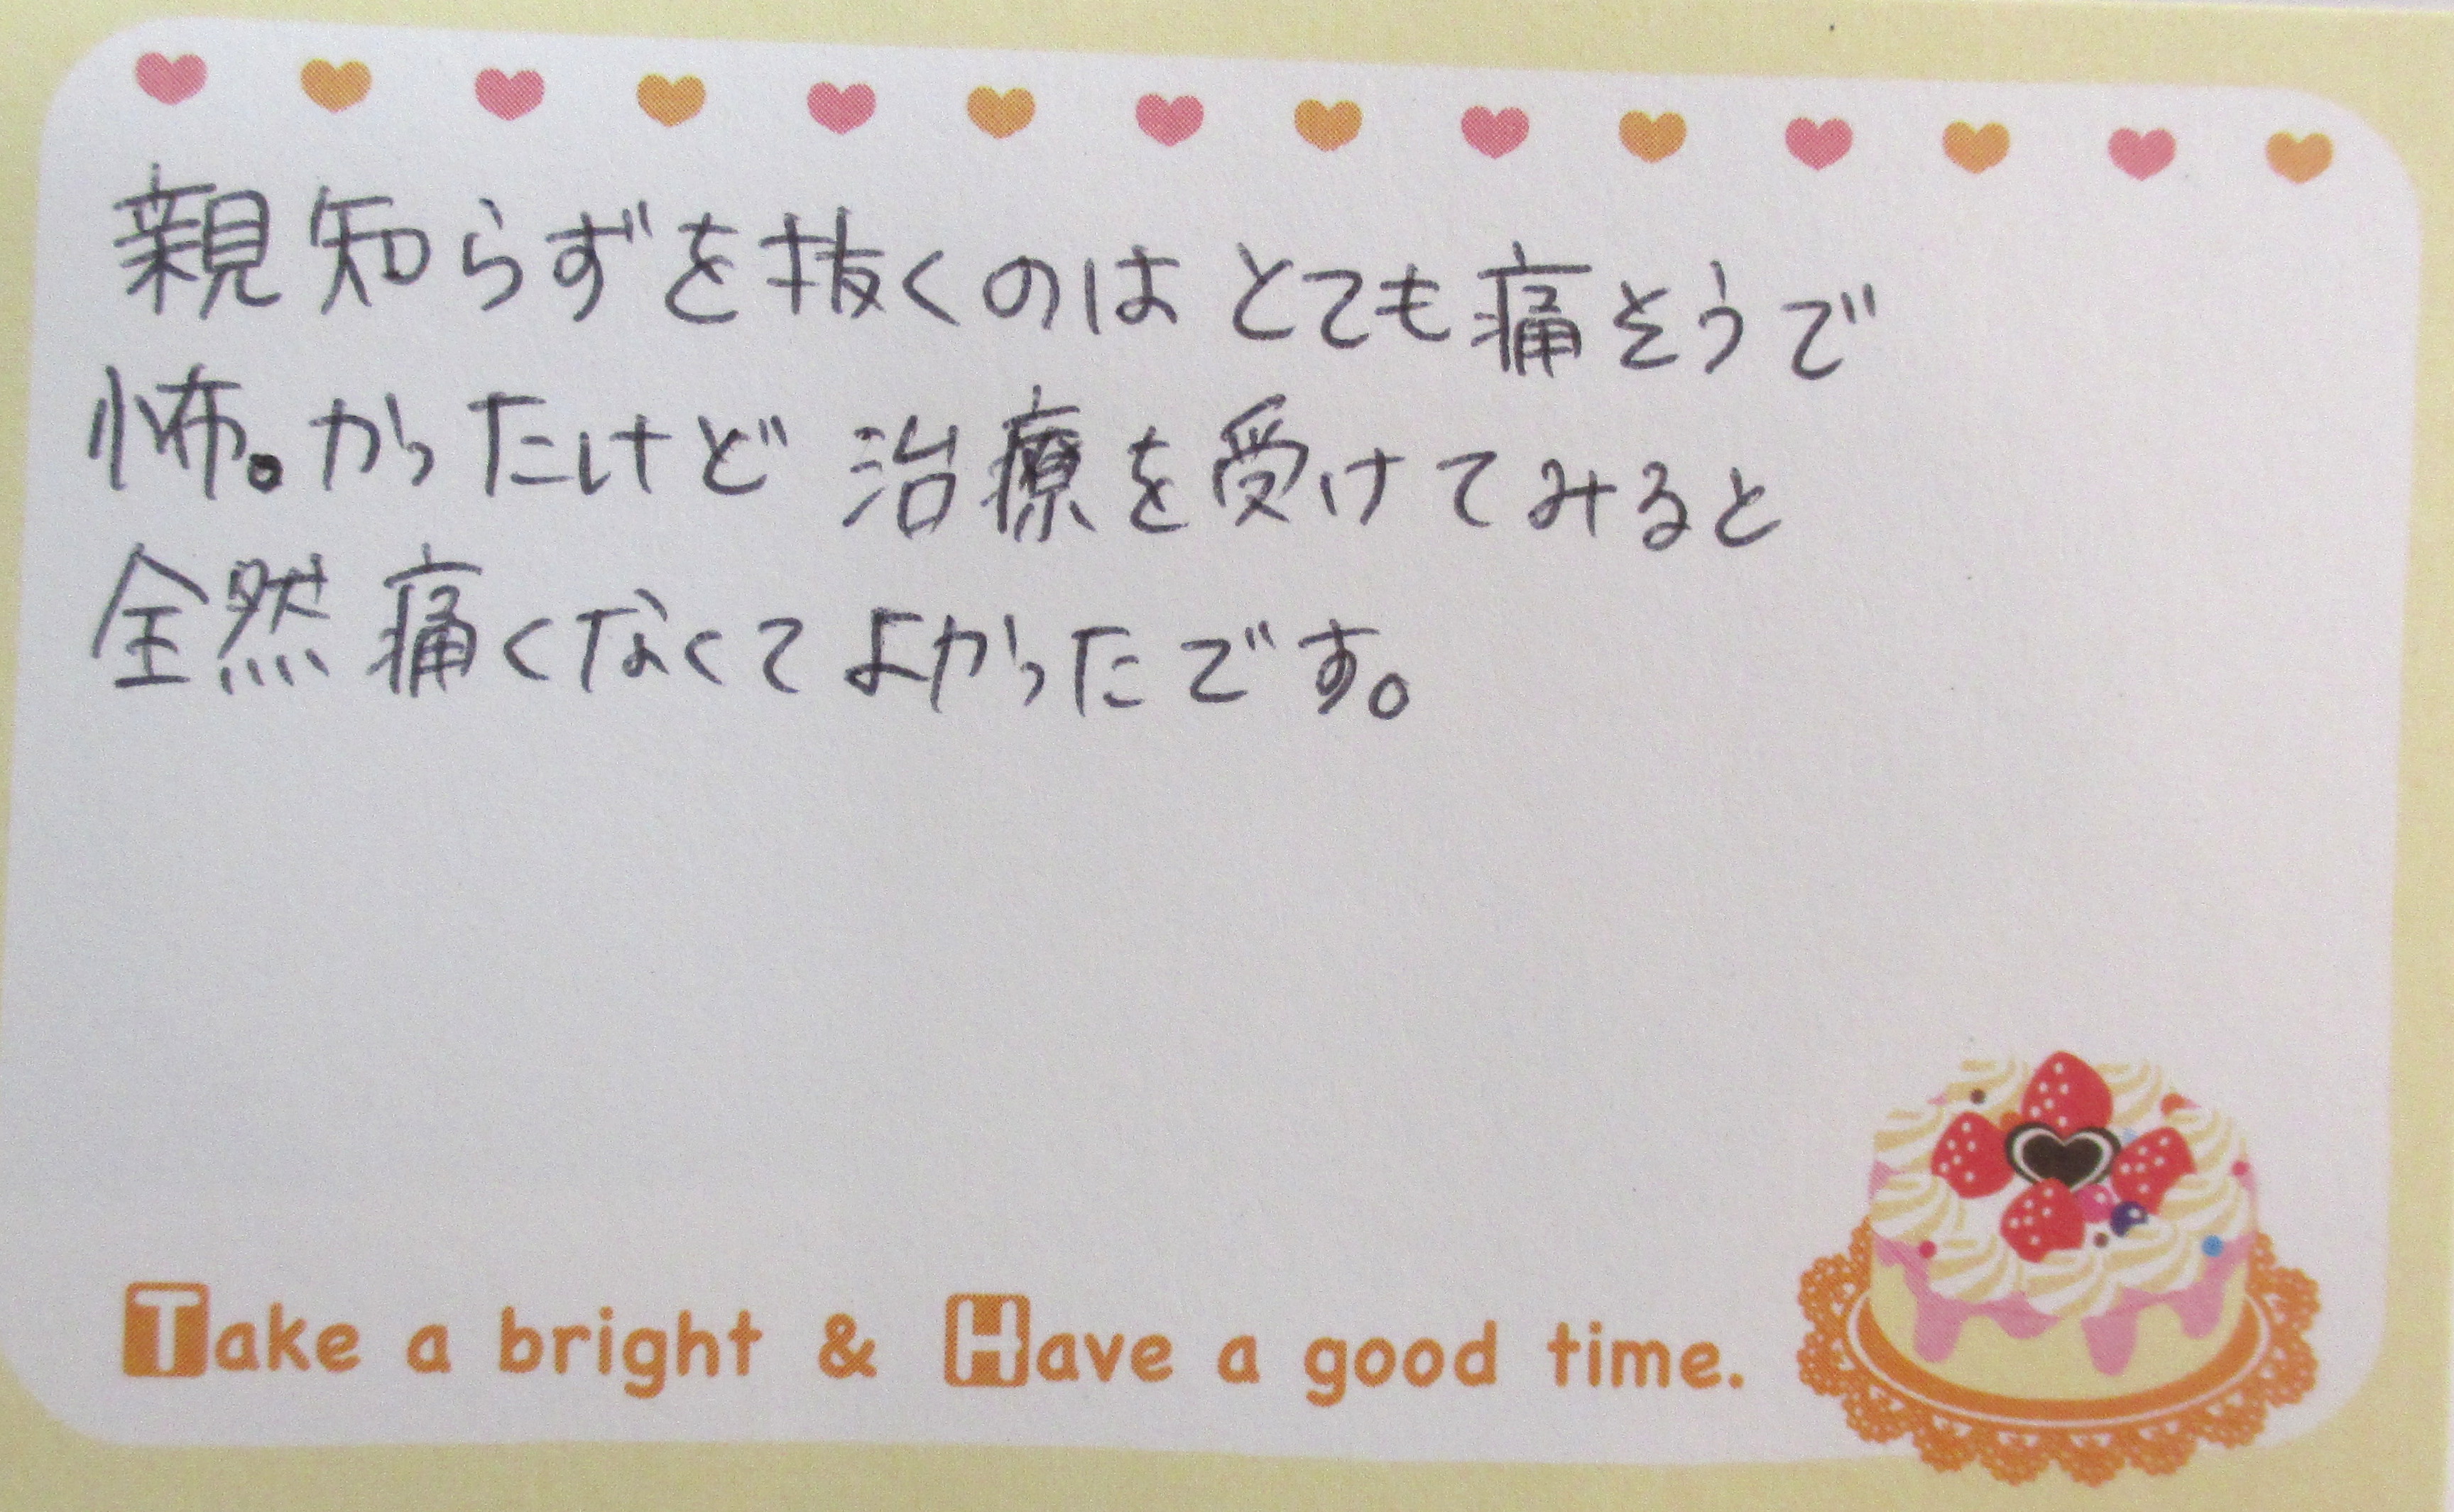 親知らずを抜くのはとても痛そうで
怖。かったけど治療を受けてみると
全然痛くなくてよかったです。
Take a bright & Have a good time.